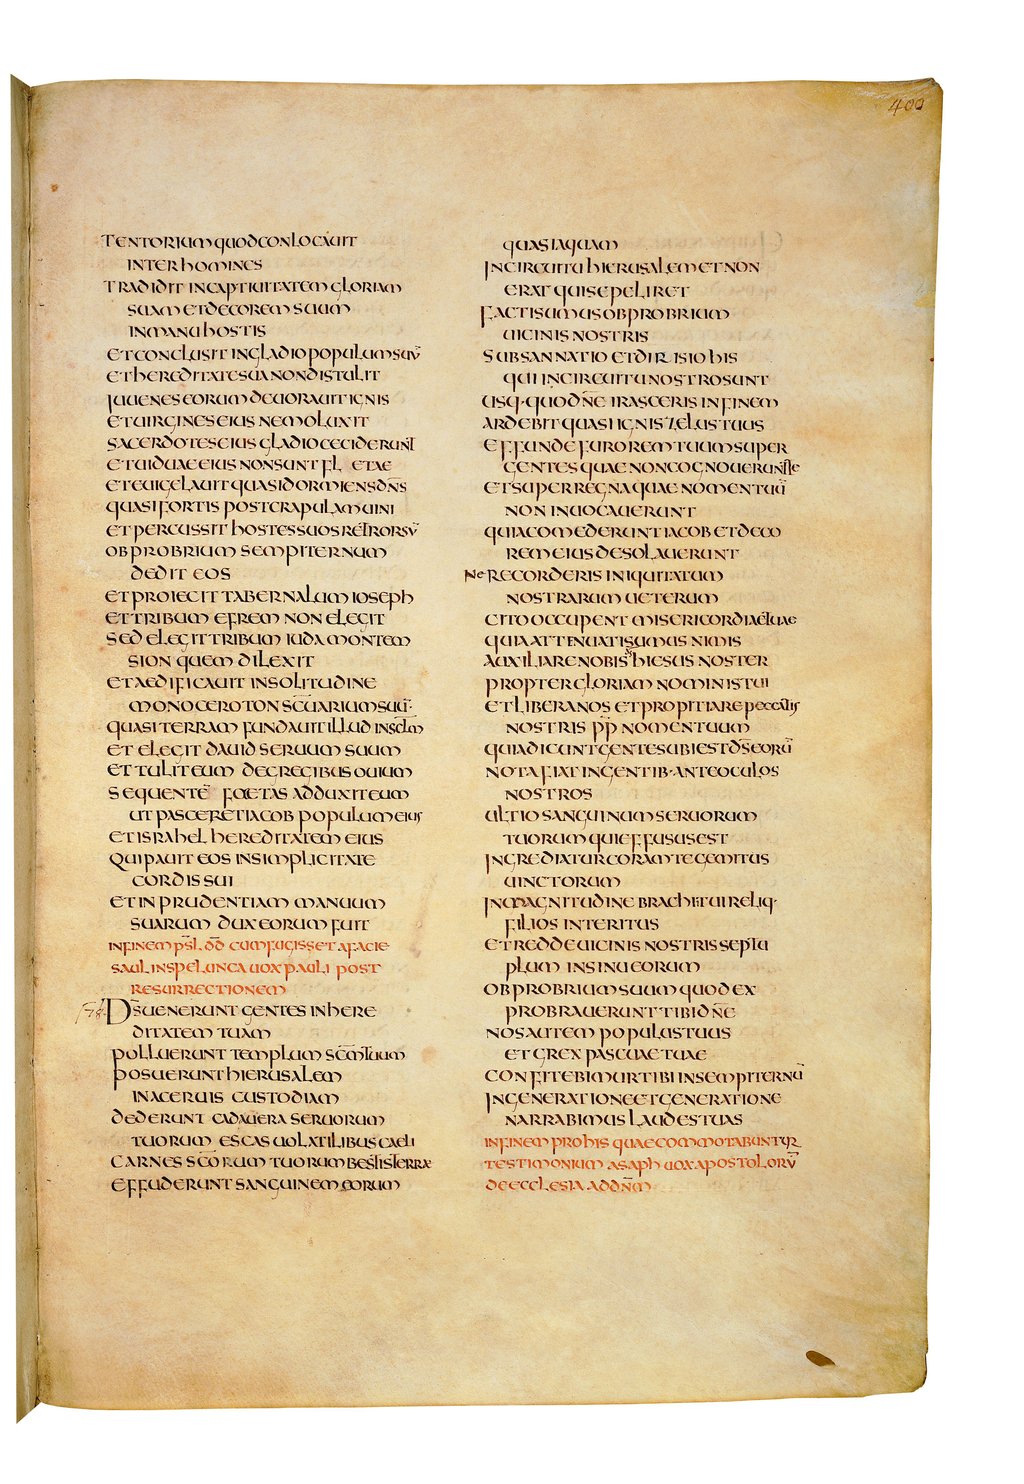 400
TENTORIUM QUOD CONLOCAUIT
INTER HOMINES
TRADIDIT IN CAPTIUITATEM GLORIAM
SUAM ET DECOREM SUUM
IN MANU HOSTIS
ET CONCLUSIT IN GLADIO POPULUM SUŪ
ET HEREDITATE SUA NON DISTULIT
IUUENES EORUM DEUORAUIT IGNIS
ET UIRGINES EIUS NEMO LUXIT
SACERDOTES EIUS GLADIO CECIDERUNT
ET UIDUAE EIUS NON SUNT FLETAE
ET EUIGELAUIT QUASI DORMIENS DN̄S
QUASI FORTIS POST CRAPULAM UINI
ET PERCUSSIT HOSTES SUOS RETRORSŪ
OBPROBRIUM SEMPITERNUM
DEDIT EOS
ET PROIECIT TABERNALUM IOSEPH
ET TRIBUM EFREM NON ELEGIT
SED ELEGIT TRIBUM IUDA MONTEM
SION QUEM DILEXIT
ET AEDIFICAUIT IN SOLITUDINE
MONOCEROTON SC̄UARIUM SUŪ·
QUASI TERRAM FUNDAUIT ILLUD IN SC̄LM
ET ELEGIT DAUID SERUUM SUUM
ET TULIT EUM DE GREGIBUS OUIUM
SEQUENTĒ FOETAS ADDUXIT EUM
UT PASCERET IACOB POPULUM EIUS
ET ISRAHEL HEREDITATEM EIUS
QUI PAUIT EOS IN SIMPLICITATE
CORDIS SUI
ET IN PRUDENTIAM MANUUM
SUARUM DUX EORUM FUIT
IN FINEM PS̄L DD̄ CUM FUGISSET A FACIE
SAUL IN SPELUNCA UOX PAULI POST
RESURRECTIONEM
DS̄ UENERUNT GENTES IN HERE
DITATEM TUAM
POLLUERUNT TEMPLUM SC̄M TUUM
POSUERUNT HIERUSALEM
IN ACERUIS CUSTODIAM
DEDERUNT CADAUERA SERUORUM
TUORUM ESCAS UOLATILIBUS CAELI
CARNES SC̄ORUM TUORUM BESTIIS TERRAE
EFFUDERUNT SANGUINEM EORUM
QUASI AQUAM
IN CIRCUITU HIERUSALEM ET NON
ERAT QUI SEPELIRET
FACTI SUMUS OBPROBRIUM
UICINIS NOSTRIS
SUBSANNATIO ET DIRISIO HIS
QUI IN CIRCUITU NOSTRO SUNT
USQ· QUO DN̄E IRASCERIS IN FINEM
ARDEBIT QUASI IGNIS ZELUS TUUS
EFFUNDE FUROREM TUUM SUPER
GENTES QUAE NON COGNOUERUNT TE
ET SUPER REGNA QUAE NOMEN TUŪ
NON INUOCAUERUNT
QUIA COMEDERUNT IACOB ET DECO
REM EIUS DESOLAUERUNT
NE RECORDERIS INIQUITATUM
NOSTRARUM UETERUM
CITO OCCUPENT MISERICORDIAE TUAE
QUIA ATTENUATI SUMUS NIMIS
AUXILIARE NOBIS D̄S HIESUS NOSTER
PROPTER GLORIAM NOMINIS TUI
ET LIBERA NOS ET PROPITIARE PECCATIS
NOSTRIS PP̄ NOMEN TUUM
QUI A DICUNT GENTES UBI EST DS̄ EORŪ
NOTA FIAT IN GENTIB· ANTE OCULOS
NOSTROS
ULTIO SANGUINUM SERUORUM
TUORUM QUI EFFUSUS EST
INGREDIATUR CORAM TE GEMITUS
UINCTORUM
IN MAGNITUDINE BRACHII TUI RELIQ·
FILIOS INTERITUS
ET REDDE UICINIS NOSTRIS SEPTU
PLUM IN SINU EORUM
OBPROBRIUM SUUM QUOD EX
PROBRAUERUNT TIBI DN̄E
NOS AUTEM POPULUS TUUS
ET GREX PASCUAE TUAE
CONFITEBIMUR TIBI IN SEMPITERNŪ
IN GENERATIONE ET GENERATIONE
NARRABIMUS LAUDES TUAS
IN FINEM PRO HIS QUAE COMMOTABUNTUR
TESTIMONIUM ASAPH UOX APOSTOLORŪ
DE ECCLESIA AD DN̄M